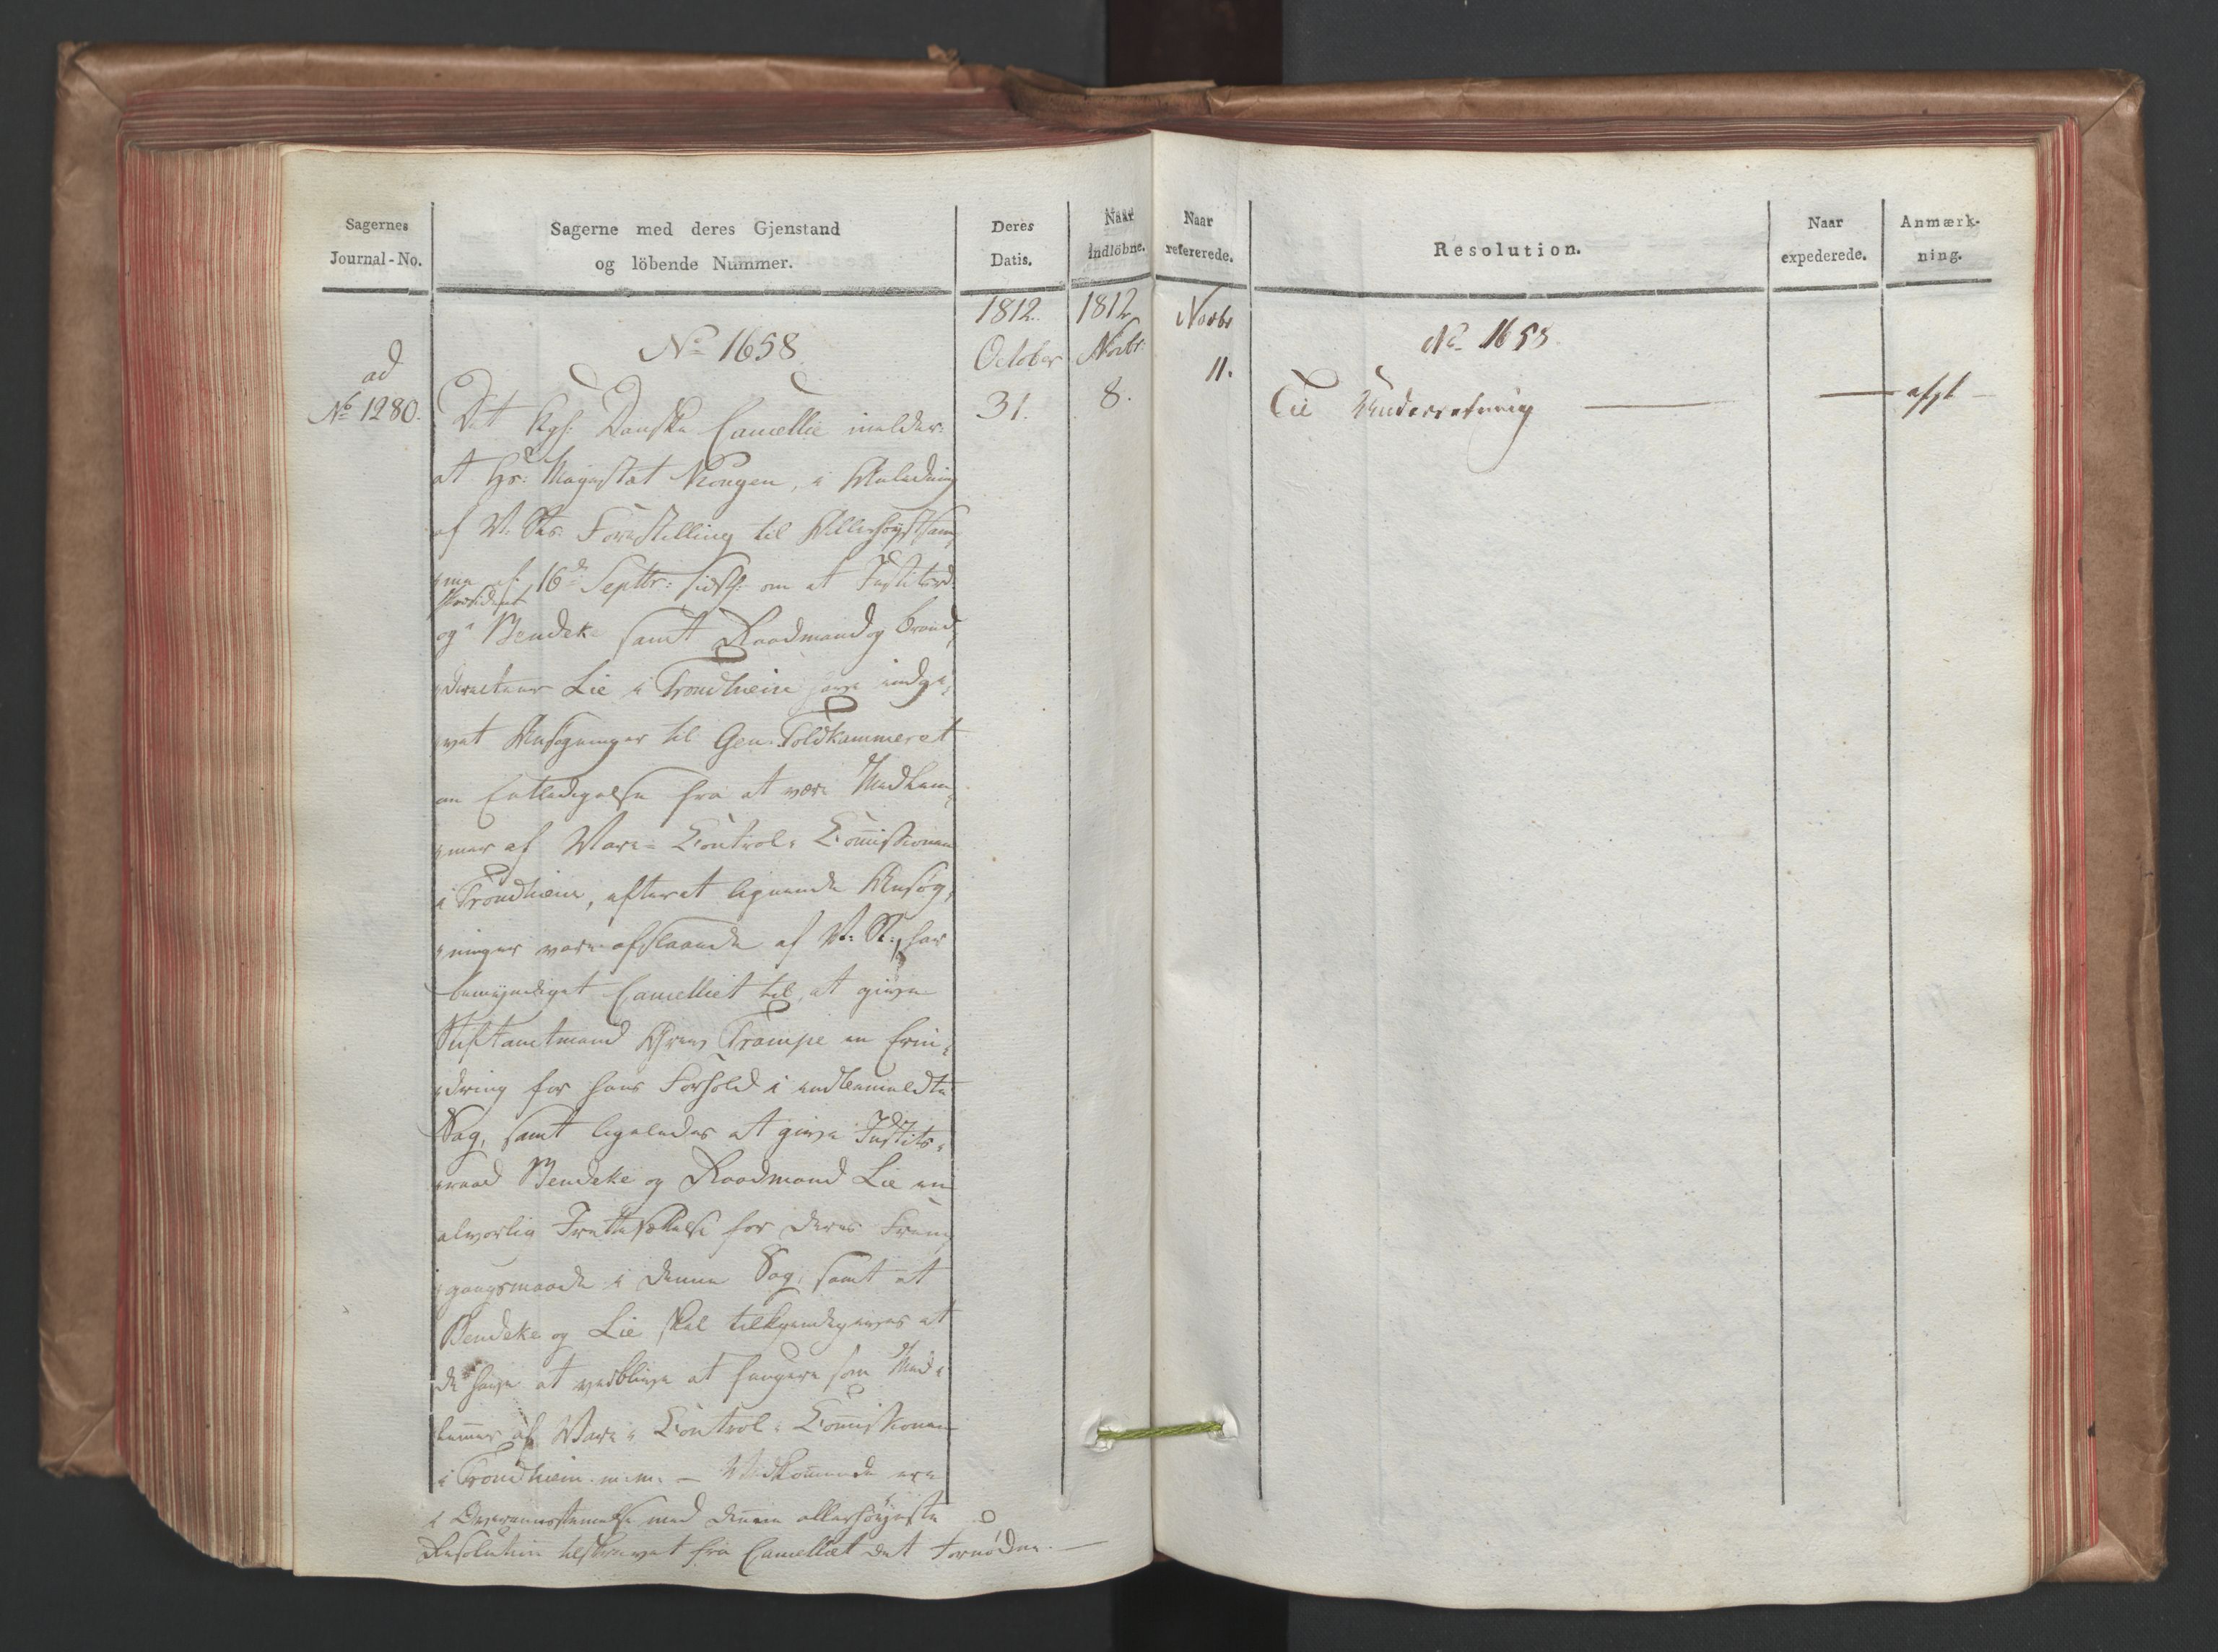 Sagernes
Journal-No.
Sagerne med deres Gjenstand
og löbende Nummer.
Deres
Datis.
Naar
indlöbne.
Naar
refererede.
Resolution.
Naar
expederede.
Anmærk-
ning.
ad
No 1280.
No 1658
Det Kgl: Danske Cancellie melder:
at Hs: Majestæt Kongen, i Anledning
af V. Ks. Forestilling til Allerhøystsam-
me af 16de Septbr: sidstl: om at Justitsrd.
Præsident
og Bendeke samt Raadmand og Brand-
directeur Lie i Trondhiem have indgi-
vet Ansøgninger til Gen. Toldkammeret
om Entledigelse fra at være Medlem-
mer af Vare-Control-Commissionen
i Trondhiem, efterat lignende Ansøg-
ninger vare afslaaede af V: K:, har
bemyndiget Cancelliet til, at give
Stiftamtmand Grev Trampe en Erin-
dring for hans Forhold i ommeldte
Sag, samt ligeledes at give Justits-
raad Bendeke og Raadmand Lie en
alvorlig Irettesættelse for deres Frem-
gangsmaade i denne Sag, samt at
Bendeke og Lie skal tilkjendegives at
de have at vedblive at fungere som Med-
lemmer af Vare-Control-Commissionen
i Trondhiem m:m: — Vedkommende ere
i Overeensstemmelse med denne allerhøyeste
Resolution tilskrevet fra Cancelliet det Fornødne. —
1812.
October
31.
1812
Novbr:
8.
Novbr
11.
No 1658.
Til Underretning — — afgl —